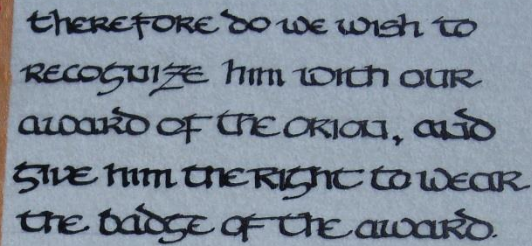 therefore do we wish to
recognize him with our
award of the orion, and
give him the right to wear
the badge of the award.